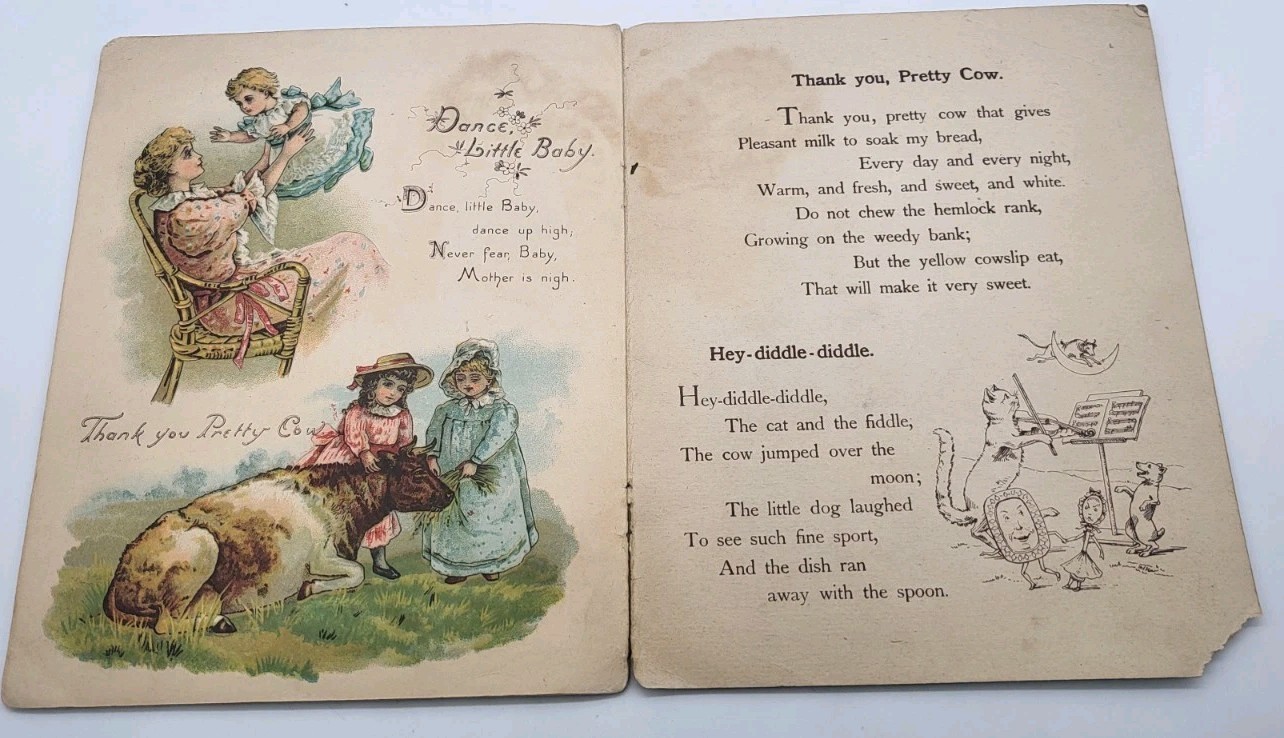 Dance,
Little Baby.
Dance, little Baby,
dance up high;
Never fear, Baby,
Mother is nigh.
Thank you Pretty Cow
Thank you, Pretty Cow.
Thank you, pretty cow that gives
Pleasant milk to soak my bread,
Every day and every night,
Warm, and fresh, and sweet, and white.
Do not chew the hemlock rank,
Growing on the weedy bank;
But the yellow cowslip eat,
That will make it very sweet.
Hey-diddle-diddle.
Hey-diddle-diddle,
The cat and the fiddle,
The cow jumped over the
moon;
The little dog laughed
To see such fine sport,
And the dish ran
away with the spoon.